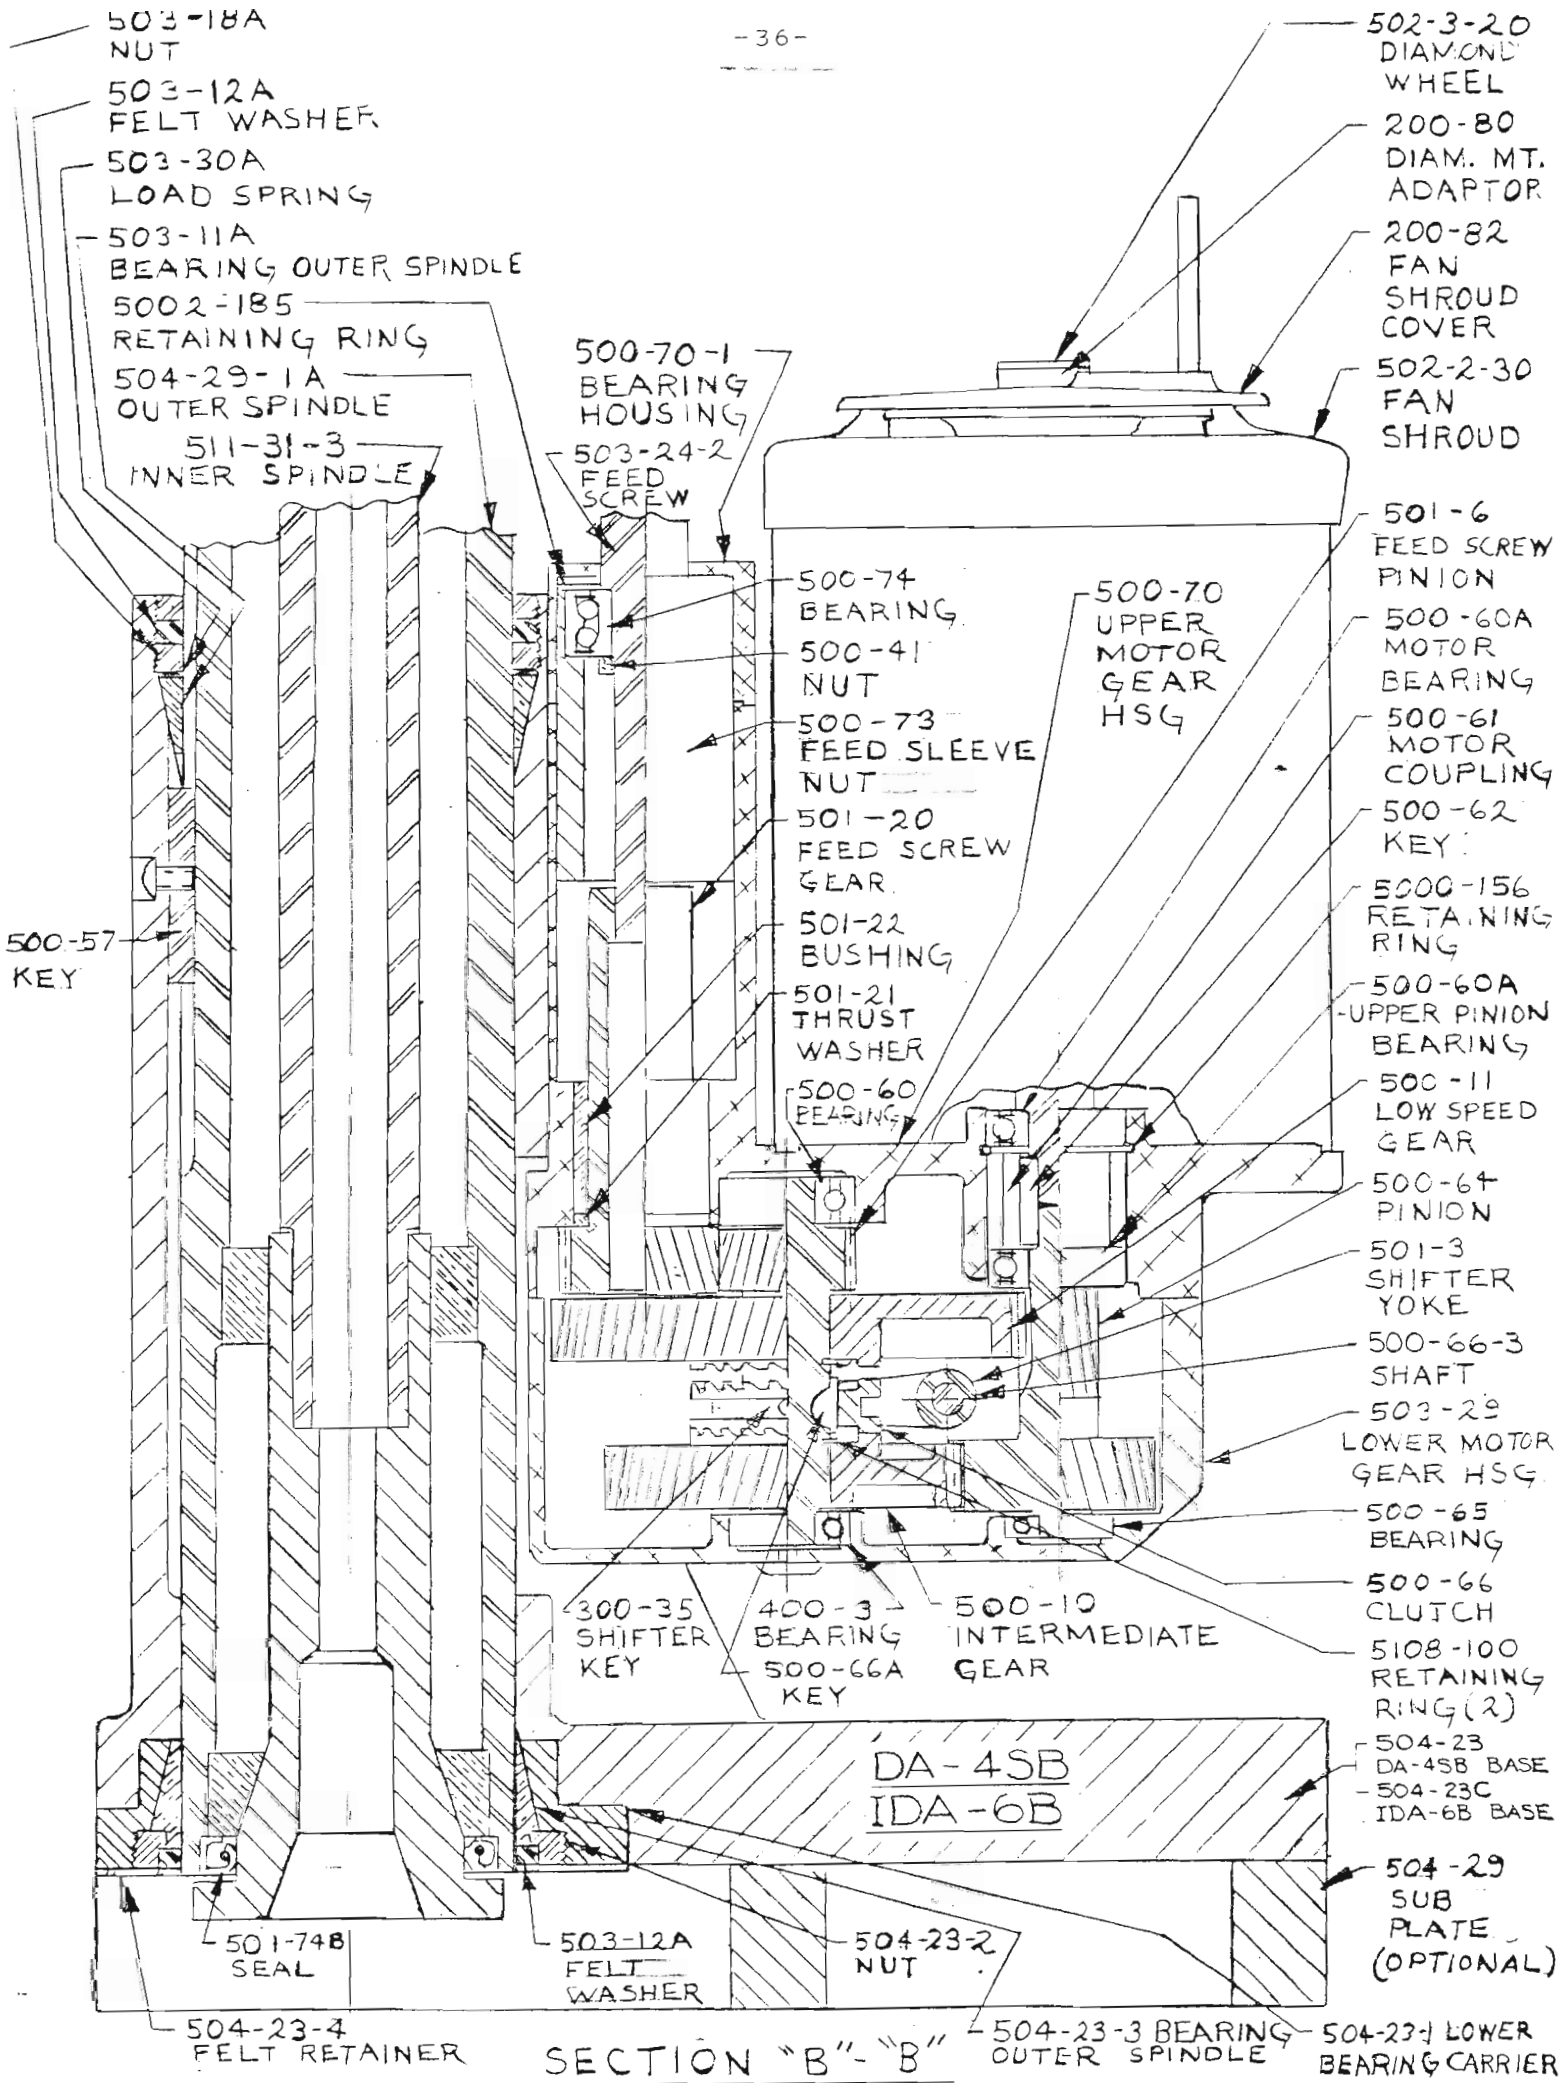 -36-
503-18A
NUT
503-12A
FELT WASHER
503-30A
LOAD SPRING
503-11A
BEARING OUTER SPINDLE
5002-185
RETAINING RING
504-29-1A
OUTER SPINDLE
511-31-3
INNER SPINDLE
500-70-1
BEARING
HOUSING
503-24-2
FEED
SCREW
500-74
BEARING
500-41
NUT
500-73
FEED SLEEVE
NUT
501-20
FEED SCREW
GEAR
501-22
BUSHING
501-21
THRUST
WASHER
500-60
BEARING
500-70
UPPER
MOTOR
GEAR
HSG
500-57
KEY
502-3-20
DIAMOND
WHEEL
200-80
DIAM. MT.
ADAPTOR
200-82
FAN
SHROUD
COVER
502-2-30
FAN
SHROUD
501-6
FEED SCREW
PINION
500-60A
MOTOR
BEARING
500-61
MOTOR
COUPLING
500-62
KEY
5000-156
RETAINING
RING
500-60A
UPPER PINION
BEARING
500-11
LOW SPEED
GEAR
500-64
PINION
501-3
SHIFTER
YOKE
500-66-3
SHAFT
503-29
LOWER MOTOR
GEAR HSG
500-65
BEARING
500-66
CLUTCH
5108-100
RETAINING
RING (2)
504-23
DA-4SB BASE
504-23C
IDA-6B BASE
504-29
SUB
PLATE
(OPTIONAL)
300-35
SHIFTER
KEY
400-3
BEARING
500-66A
KEY
500-10
INTERMEDIATE
GEAR
DA-4SB
IDA-6B
501-74B
SEAL
503-12A
FELT
WASHER
504-23-2
NUT
504-23-4
FELT RETAINER
SECTION "B"-"B"
504-23-3 BEARING
OUTER SPINDLE
504-23-1 LOWER
BEARING CARRIER